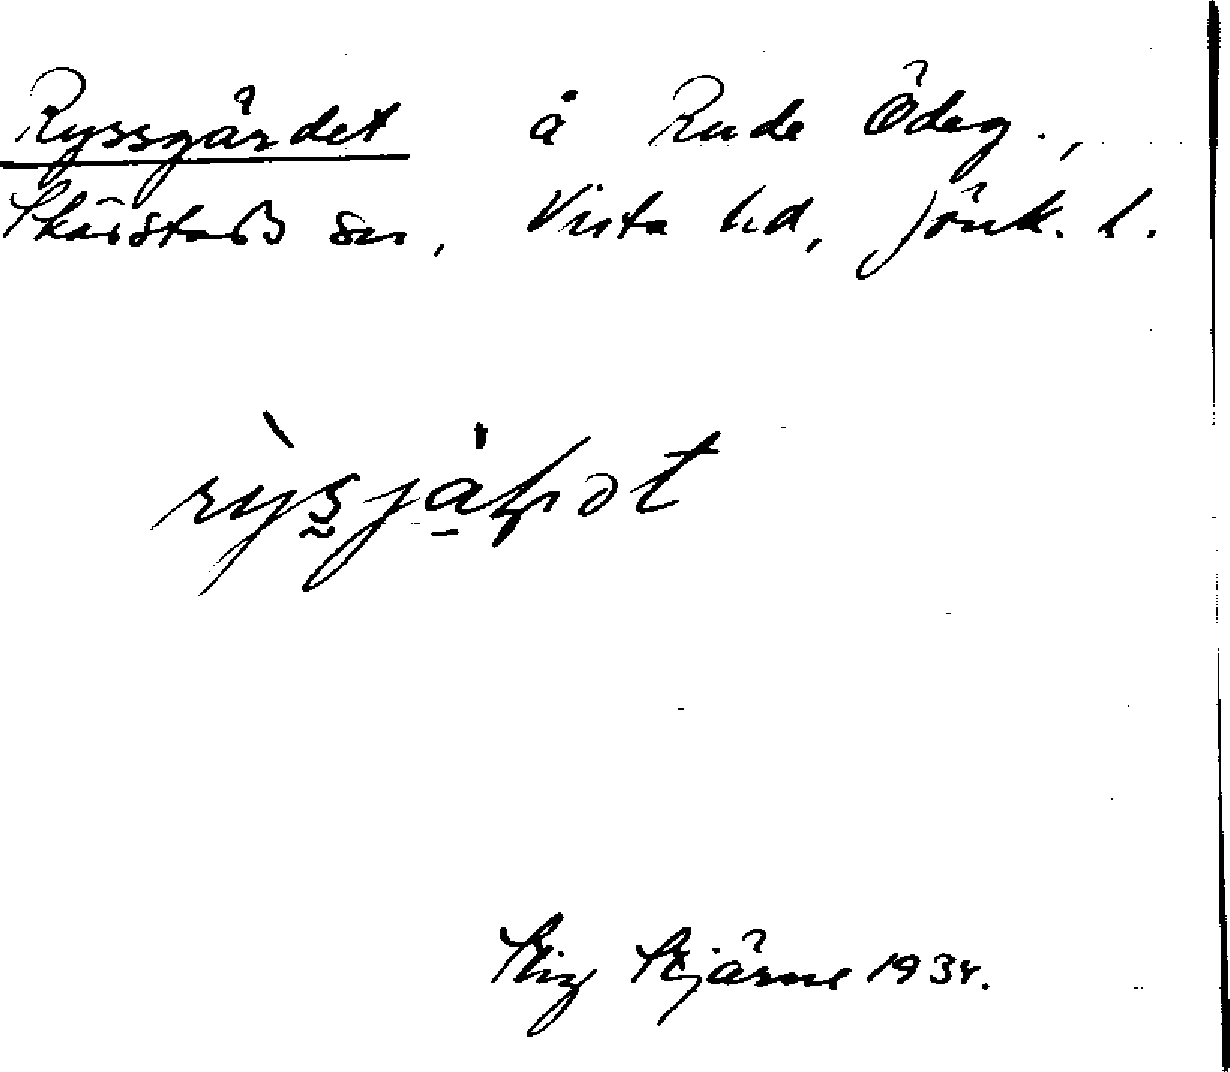 Ryssgärdet å Rude Ödeg.,
Skärstads sn, Vista hd, Jönk. l.
Stig Stjärne 1934.